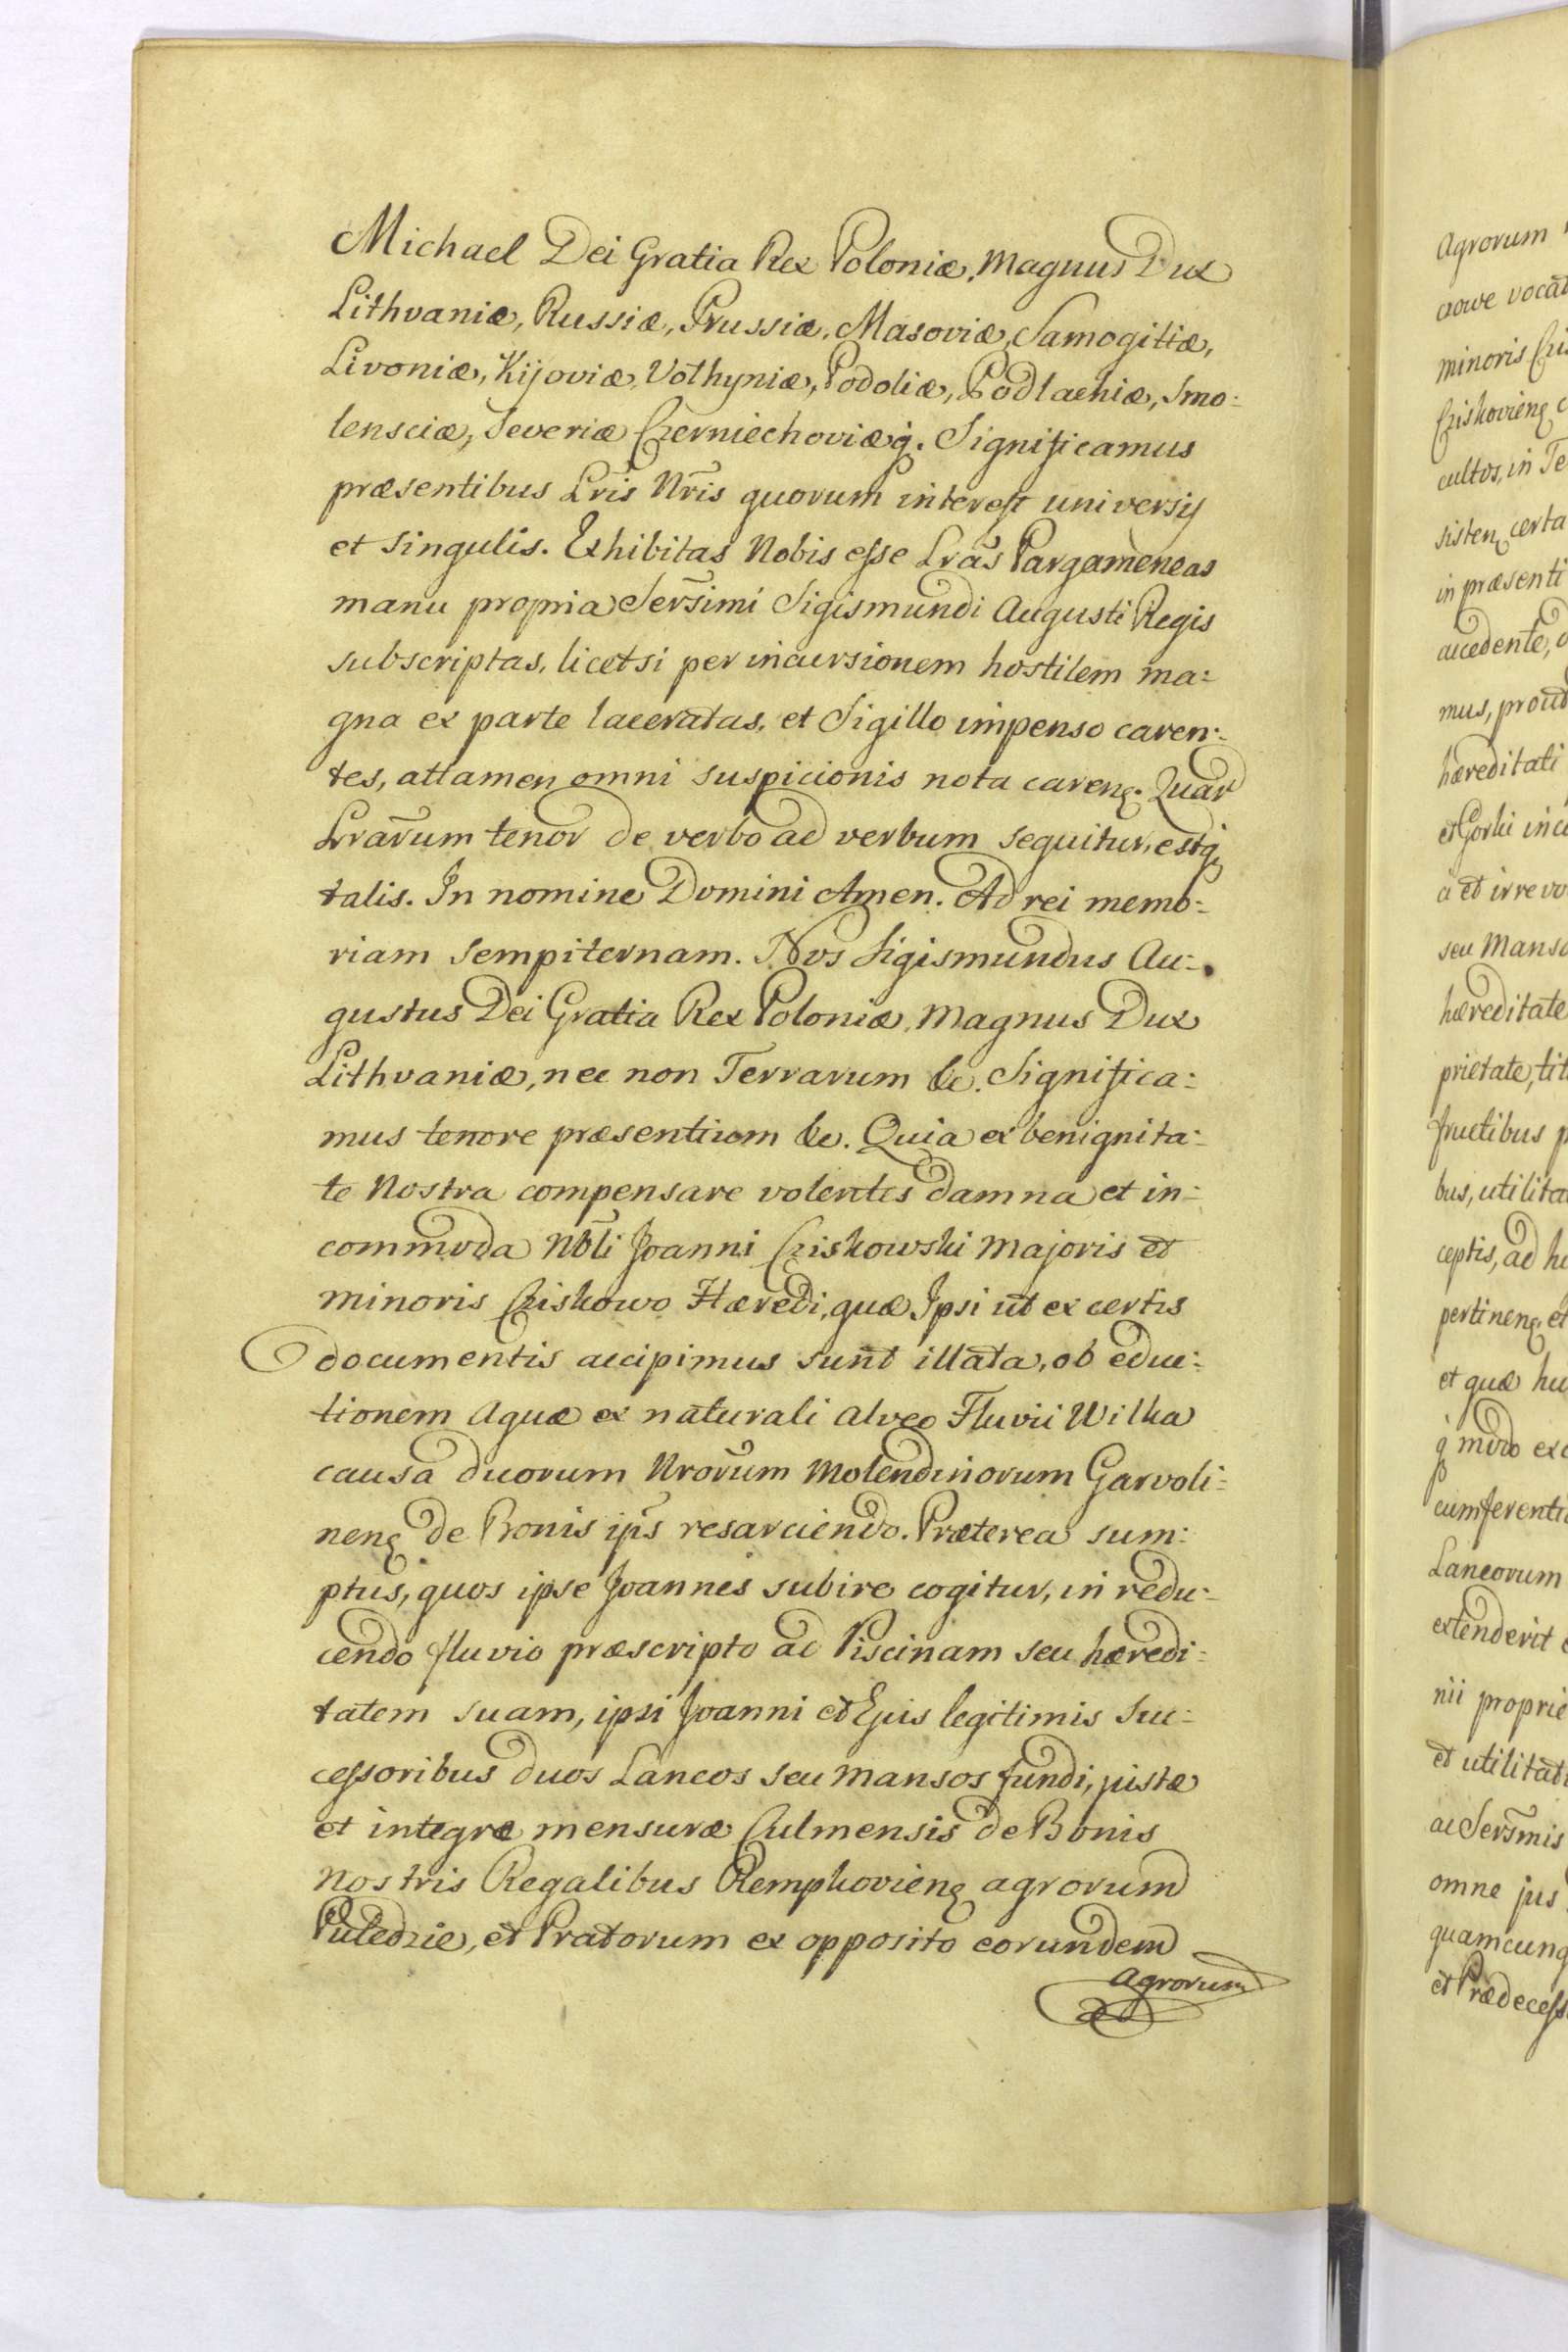 Michael Dei Gratia Rex Poloniæ, Magnus Dux
Lithvaniæ, Russiæ, Prussiæ, Masoviæ, Samogitiæ,
Livoniæ, Kijoviæ, Volhyniæ, Podoliæ, Podlachiæ, Smo:
lensciæ, Severiæ Czerniechoviæq̃. Significamus
præsentibus Lr̃is Nr̃is quorum interest universis
et singulis. Exhibitas Nobis esse Lrãs Pargameneas
manu propria Serx̃imi Sigismundi Augusti Regis
subscriptas, licetsi per incursionem hostilem ma:
gna ex parte laceratas, et Sigillo impenso caren:
tes, attamen omni suspicionis nota careñ. Quar̃
Lrarũm tenor de verbo ad verbum sequitur, estq̃
talis. In nomine Domini Amen. Ad rei memo:
riam sempiternam. Nos Sigismundus Au:
gustus Dei Gratia Rex Poloniæ, Magnus Dux
Lithvaniæ, nec non Terrarum &c. Significa:
mus tenore præsentium &c. Quia ex benignita:
te Nostra compensare volentes damna et in:
commoda Nbl̃i Joanni Cziskowski Majoris et
minoris Cziskowo Hæredi, quæ Ipsi ut ex certis
documentis accipimus sunt illata, ob educ:
tionem Aquæ ex naturali alveo Fluvii Wilka
causa duorum Nrorũm Molendinorum Garvoli:
neñ de Bonis ip̃s resarciendo. Præterea sum:
ptus, quos ipse Joannes subire cogitur, in redu:
cendo fluvio præscripto ad Piscinam seu hæredi:
tatem suam, ipsi Joanni et Ejus legitimis Suc:
cessoribus duos Laneos seu Mansos fundi, justæ
et integræ mensuræ Culmensis de Bonis
Nostris Regalibus Rempkovieñ agrorum
Puledzie, et Pratorum ex opposito eorundem
agrorum
Agrorum
minoris
cultos, in
certa
in præsenti
accedente,
mus,
hæreditati
et Gorki
a et irrevo
seu Manso
hæreditate
prietate, tit
fructibus
bus, utilita
ceptis, ad
et quæ
cumferenti
Laneorum
extenderit
nii proprie
et utilitat
ac Serx̃mis
omne jus
quamcunq
et Prædecess